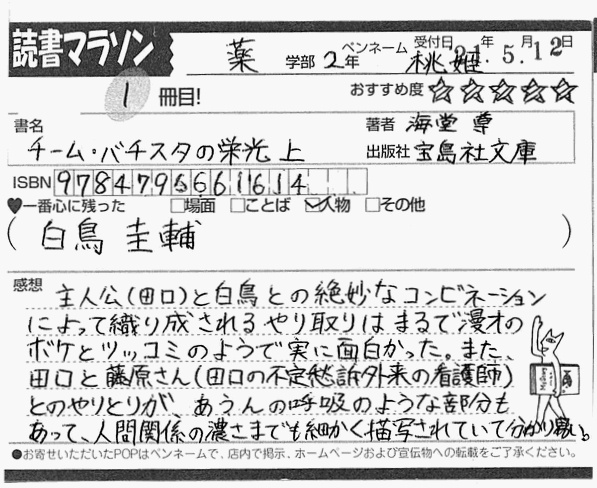 読書マラソン
薬 学部 2年 ペンネーム 桃姫 受付日 21年 5月 12日
1 冊目! おすすめ度 ☆☆☆☆☆
書名 著者 海堂 尊
チーム・バチスタの栄光 上 出版社 宝島社文庫
ISBN 9784796661614
♥一番心に残った □場面 □ことば ☑人物 □その他
(白鳥 圭輔)
感想 主人公(田口)と白鳥との絶妙なコンビネーション
によって織り成されるやり取りはまるで漫才の
ボケとツッコミのようで実に面白かった。また、
田口と藤原さん(田口の不定愁訴外来の看護師)
とのやりとりが、あうんの呼吸のような部分も
あって、人間関係の濃さまでも細かく描写されていて分かり易い。
●お寄せいただいたPOPはペンネームで、店内で掲示、ホームページおよび宣伝物への転載をご了承ください。